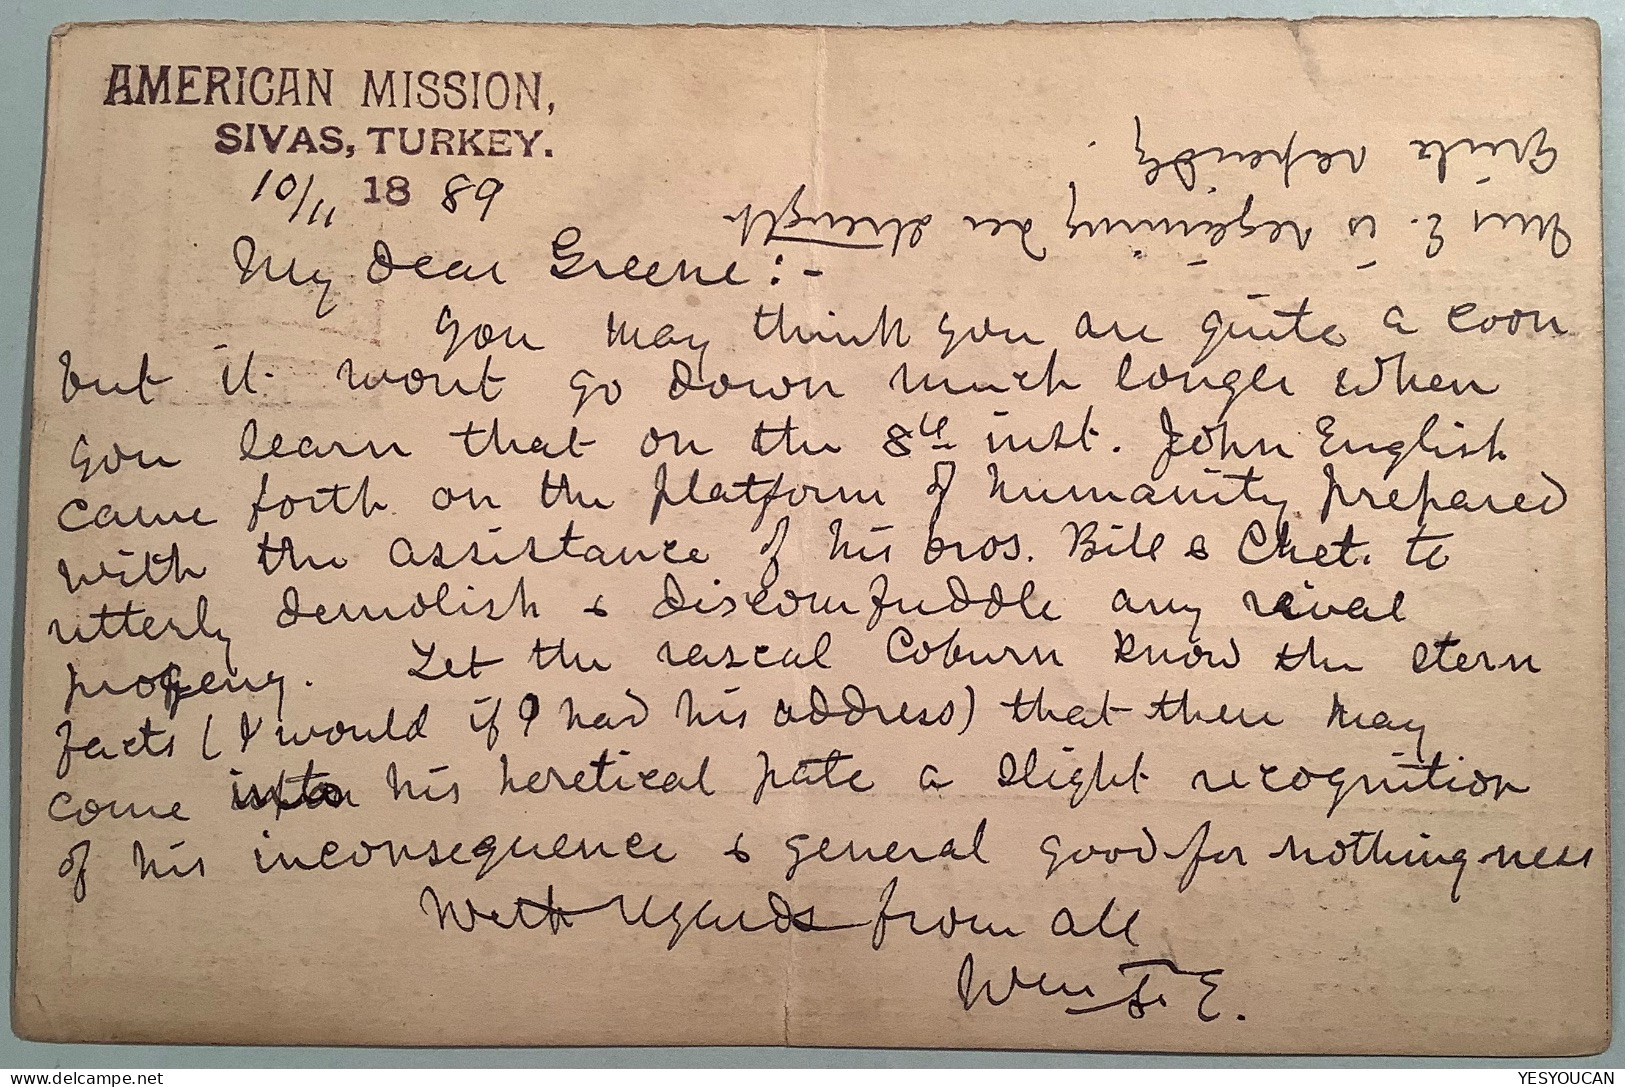 AMERICAN MISSION,
SIVAS, TURKEY.
10/11 1889
My dear Greene:-
You may think you are quite a coon
but it wont go down much longer when
you learn that on the 8th inst. John English
came forth on the platform of humanity prepared
with the assistance of his bros. Bill & Chet. to
utterly demolish & discomfuddle any rival
progeny. Let the rascal Coburn know the stern
facts (I would if I had his address) that there may
come into his heretical pate a slight recognition
of his inconsequence & general good for nothing-ness
With regards from all
Wm S. E.
Mrs E. is regaining her strength
quite rapidly.
YESYOUCAN